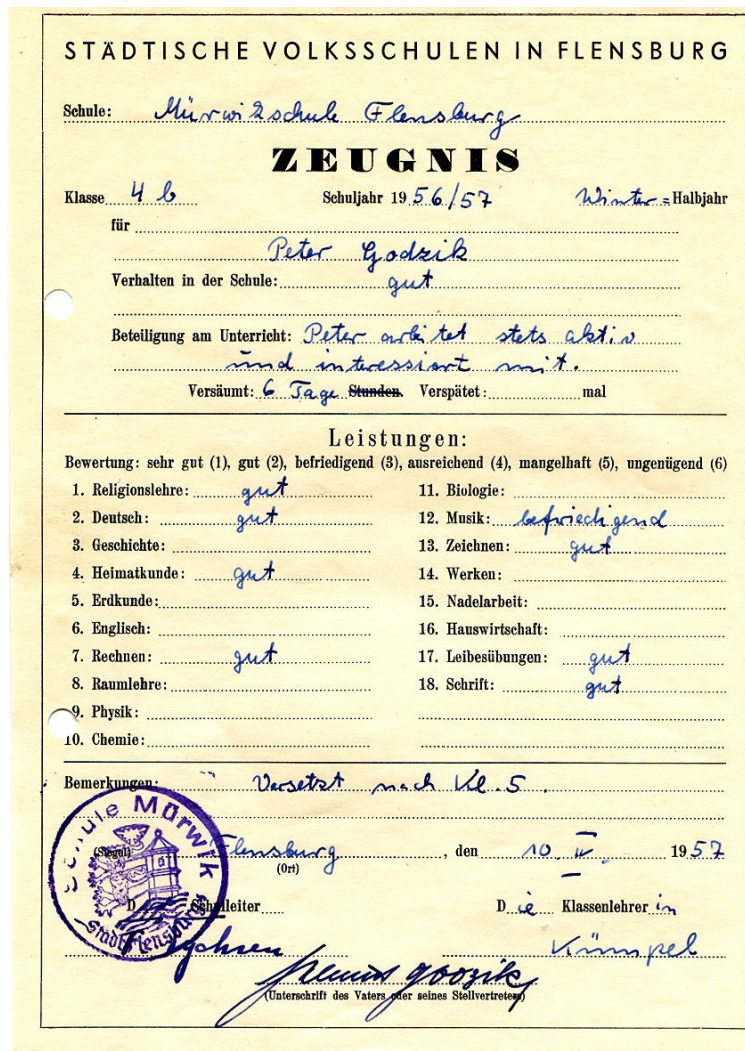 STÄDTISCHE VOLKSSCHULEN IN FLENSBURG
Schule: Mürwikschule Flensburg
ZEUGNIS
Klasse 4 b Schuljahr 1956/57 Winter=Halbjahr
für
Peter Godzik
Verhalten in der Schule: gut
Beteiligung am Unterricht: Peter arbeitet stets aktiv
und interessiert mit.
Versäumt: 6 Tage Stunden. Verspätet: mal
Leistungen:
Bewertung: sehr gut (1), gut (2), befriedigend (3), ausreichend (4), mangelhaft (5), ungenügend (6)
1. Religionslehre: gut
2. Deutsch: gut
3. Geschichte:
4. Heimatkunde: gut
5. Erdkunde:
6. Englisch:
7. Rechnen: gut
8. Raumlehre:
9. Physik:
10. Chemie:
11. Biologie:
12. Musik: befriedigend
13. Zeichnen: gut
14. Werken:
15. Nadelarbeit:
16. Hauswirtschaft:
17. Leibesübungen: gut
18. Schrift: gut
Bemerkungen: Versetzt nach Kl. 5.
Schule Mürwik
Stadt Flensburg
(Siegel) Flensburg, den 10. IV. 1957
(Ort)
D Schulleiter Die Klassenlehrerin
Kümpel
Godzik
(Unterschrift des Vaters oder seines Stellvertreters)